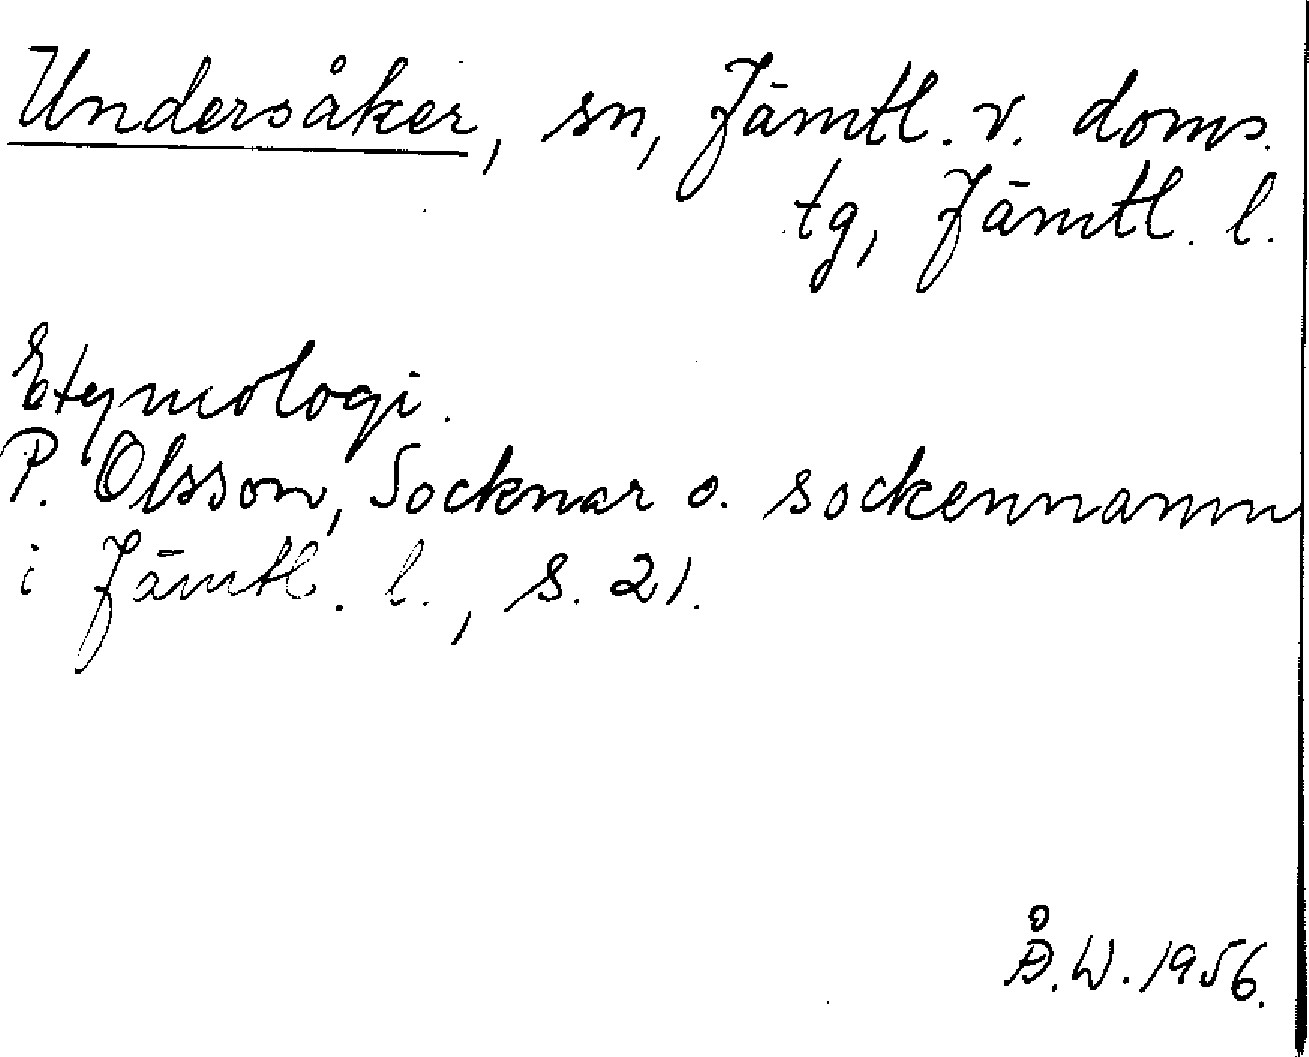 Undersåker, sn, Jämtl. v. doms.
tg, Jämtl. l.
Etymologi.
P. Olsson, Socknar o. sockennamn
i Jämtl. l., s. 21.
Å.W. 1956.